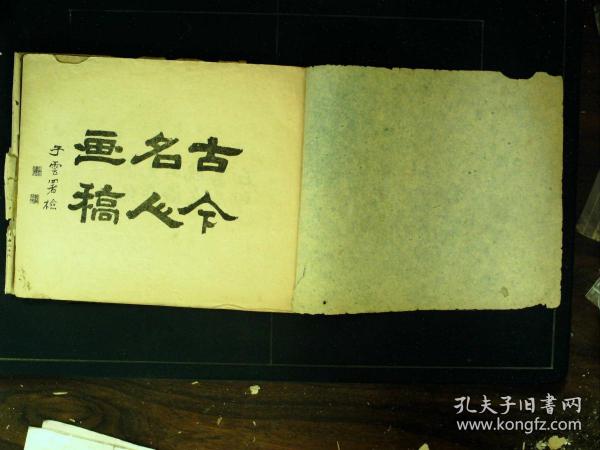 古今
名人
画稿
子雲署檢
孔夫子旧書网
www.kongfz.com